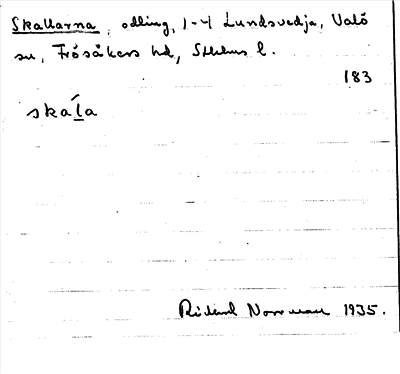 Skallarna, odling, 1-4 Lundsvedja, Valö
sn, Frösåkers hd, Sthlms l.
183
skaĺ̲a
Rikard Norrman 1935.